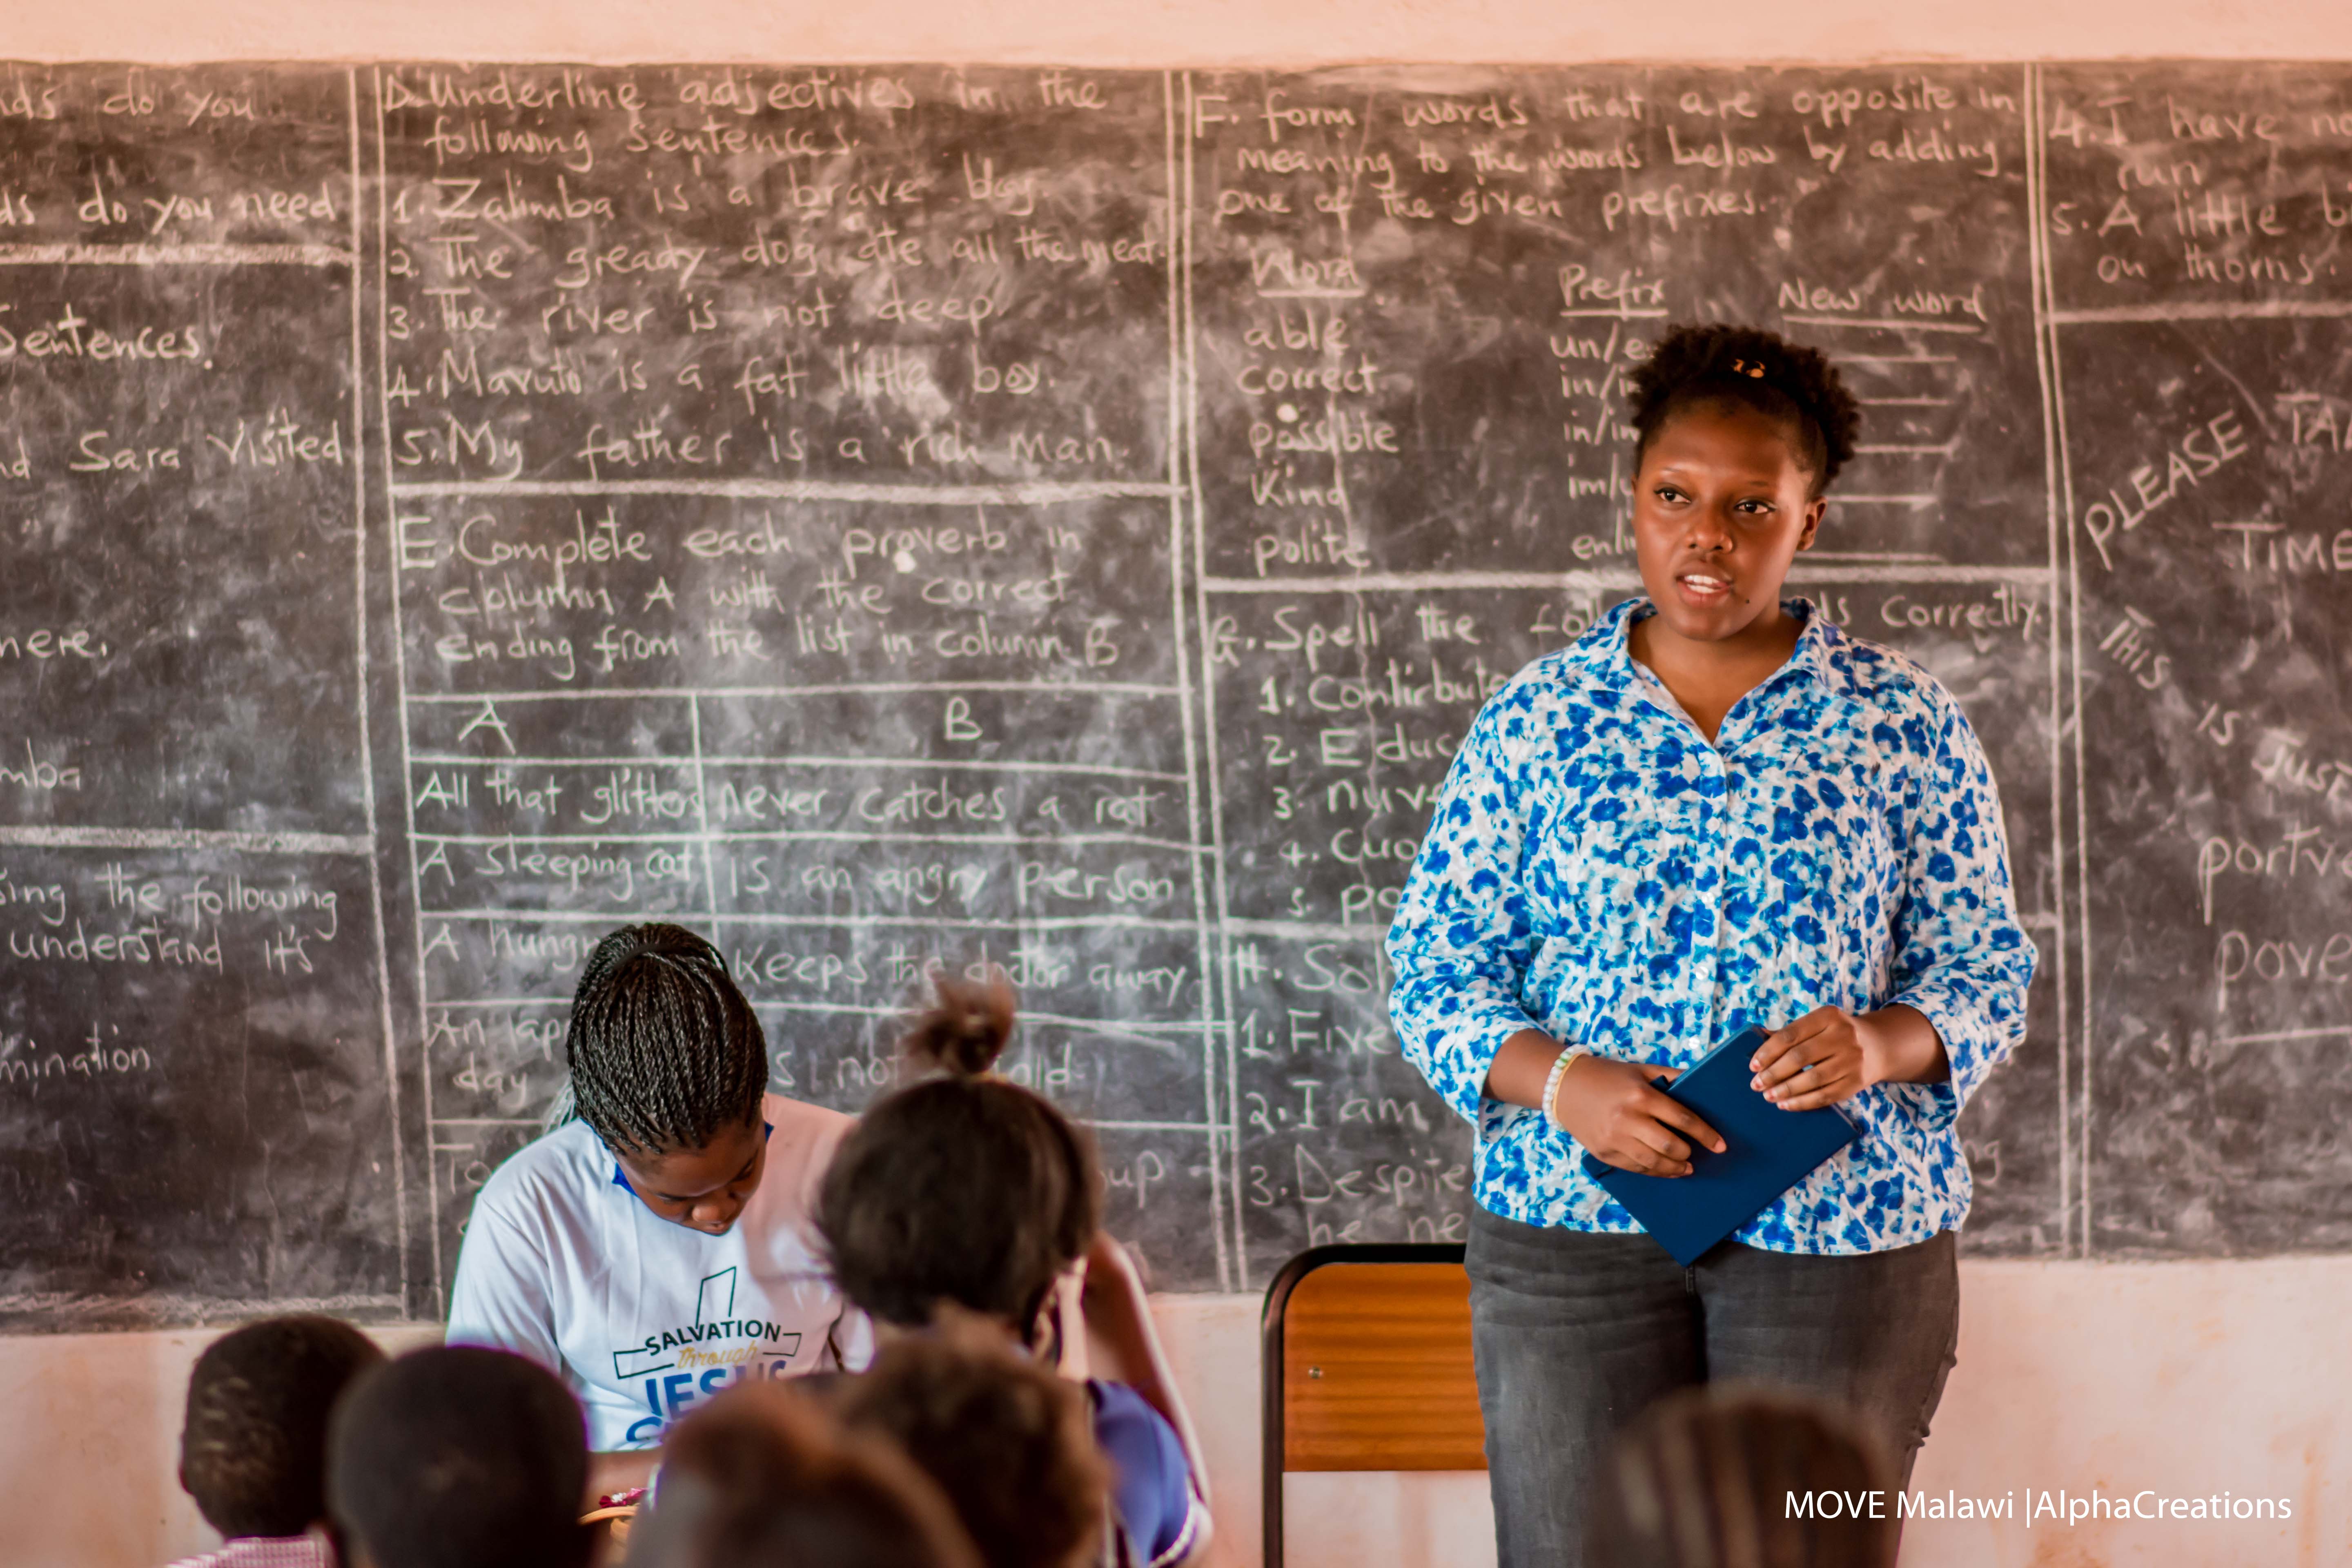 ds do you
ds do you need
Sentences.
nd Sara visited
here.
mba
sing the following
understand it's
mination
D. Underline adjectives in the
following sentences.
1. Zalimba is a brave boy.
2. The gready dog ate all the meat.
3. The river is not deep.
4. Mavuto is a fat little boy.
5. My father is a rich man.
E. Complete each proverb in
column A with the correct
ending from the list in column B
A B
All that glitters never catches a rat
A sleeping cat is an angry person
A hungr Keeps the doctor away
An app
day s not old
To up
F. form words that are opposite in
meaning to the words below by adding
one of the given prefixes.
Word Prefix New word
able un/e
correct in/i
possible in/im
Kind im/
polite en/
G. Spell the fo ds correctly.
1. Contirbute
2. Educ
3. nurs
4. Cuo
5. po
H. Sol
1. Five
2. I am
3. Despite
he ne
4. I have n
run
5. A little b
on thorns.
PLEASE TA
TIME
THIS is JUST
portve
pove
SALVATION
through
JESUS
MOVE Malawi |AlphaCreations